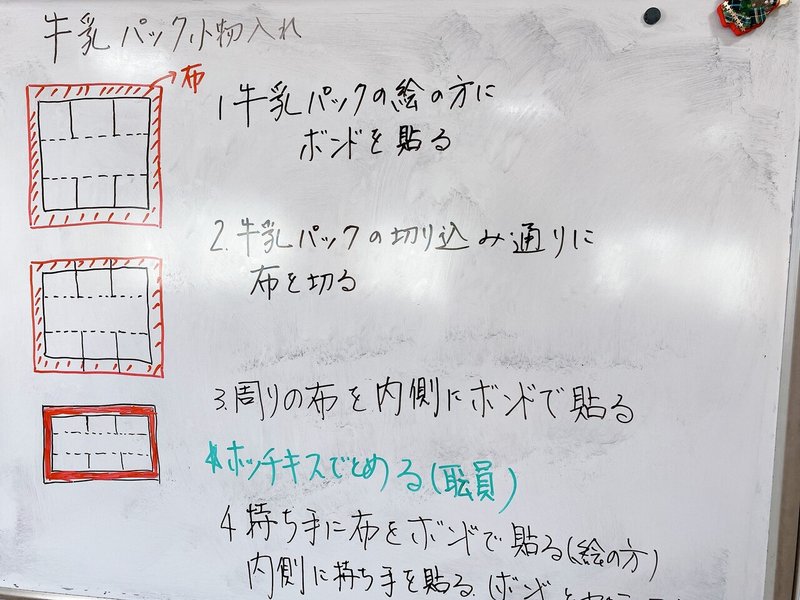 牛乳パック小物入れ
布
1 牛乳パックの絵の方に
ボンドを貼る
2. 牛乳パックの切り込み通りに
布を切る
3. 周りの布を内側にボンドで貼る
ホッチキスでとめる(職員)
4. 持ち手に布をボンドで貼る(絵の方)
内側に持ち手を貼る. (ボンド